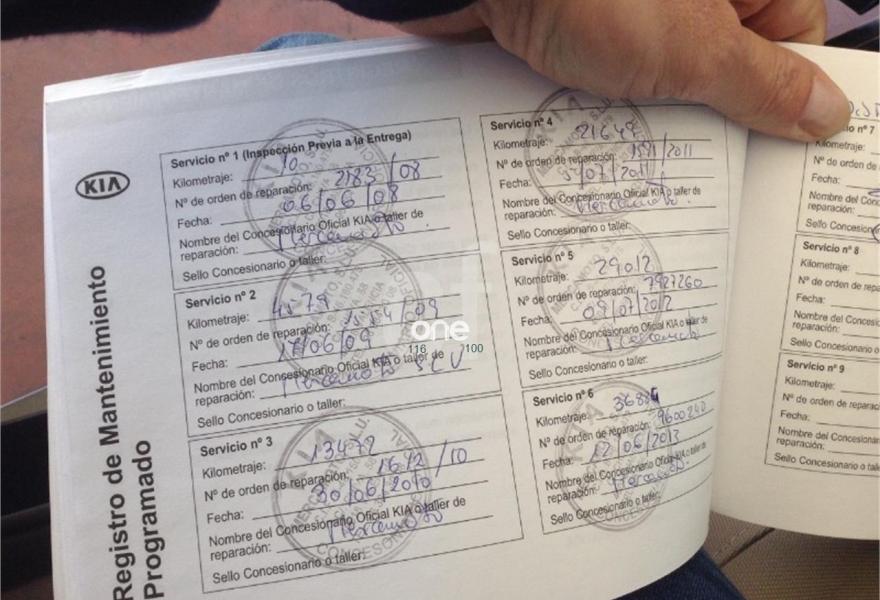 KIA
Registro de Mantenimiento
Programado
Servicio nº 1 (Inspección Previa a la Entrega)
Kilometraje: 10
Nº de orden de reparación: 2183/08
Fecha: 06/06/08
Nombre del Concesionario Oficial KIA o taller de
reparación: Mercamoto
Sello Concesionario o taller:
Servicio nº 2
Kilometraje: 4579
Nº de orden de reparación:
Fecha: 17/06/09
Nombre del Concesionario Oficial KIA o taller de
reparación: Mercamoto SLU
Sello Concesionario o taller:
Servicio nº 3
Kilometraje: 13472
Nº de orden de reparación: 1612/10
Fecha: 30/06/2010
Nombre del Concesionario Oficial KIA o taller de
reparación: Mercamoto
Sello Concesionario o taller:
Servicio nº 4
Kilometraje: 21642
Nº de orden de reparación: /2011
Fecha: 5/07/2011
Nombre del Concesionario Oficial KIA o taller de
reparación: Mercamoto.
Sello Concesionario o taller:
Servicio nº 5
Kilometraje: 29012
Nº de orden de reparación: 7927260
Fecha: 09/07/2012
Nombre del Concesionario Oficial KIA o taller de
reparación: Mercamoto
Sello Concesionario o taller:
Servicio nº 6
Kilometraje: 36884
Nº de orden de reparación: 9600240
Fecha: 12/06/2013
Nombre del Concesionario Oficial KIA o taller de
reparación: Mercamoto.
Sello Concesionario o taller:
io nº 7
Kilometraje:
Nº de orden de
Fecha:
Nombre del Conc
reparación:
Sello Concesion
Servicio nº 8
Kilometraje:
Nº de orden de repa
Fecha:
Nombre del Conces
reparación:
Sello Concesionario o
Servicio nº 9
Kilometraje:
Nº de orden de reparac
Fecha:
Nombre del Concesionar
reparación:
Sello Concesionario o tall
one
116 100